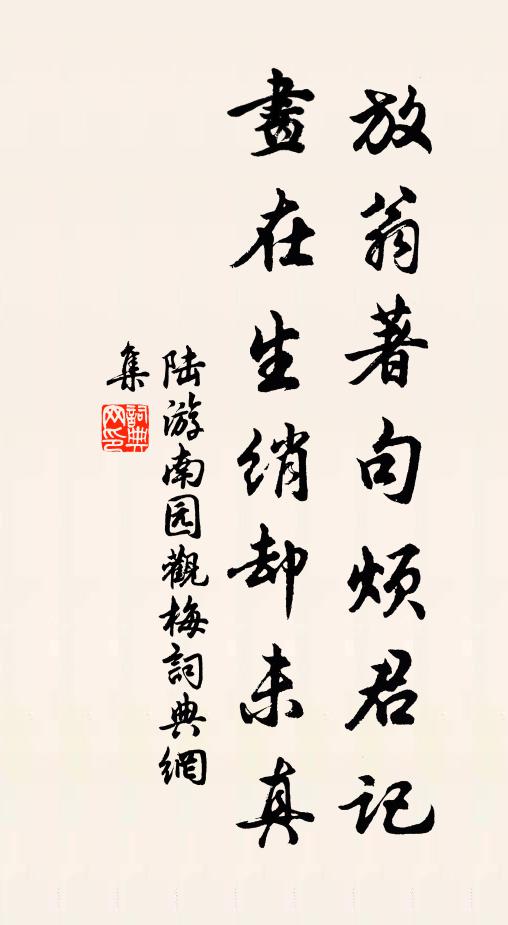 放翁著句烦君记
畫在生绡却未真
陆游南园觀梅詞典網
集
詞典
网印